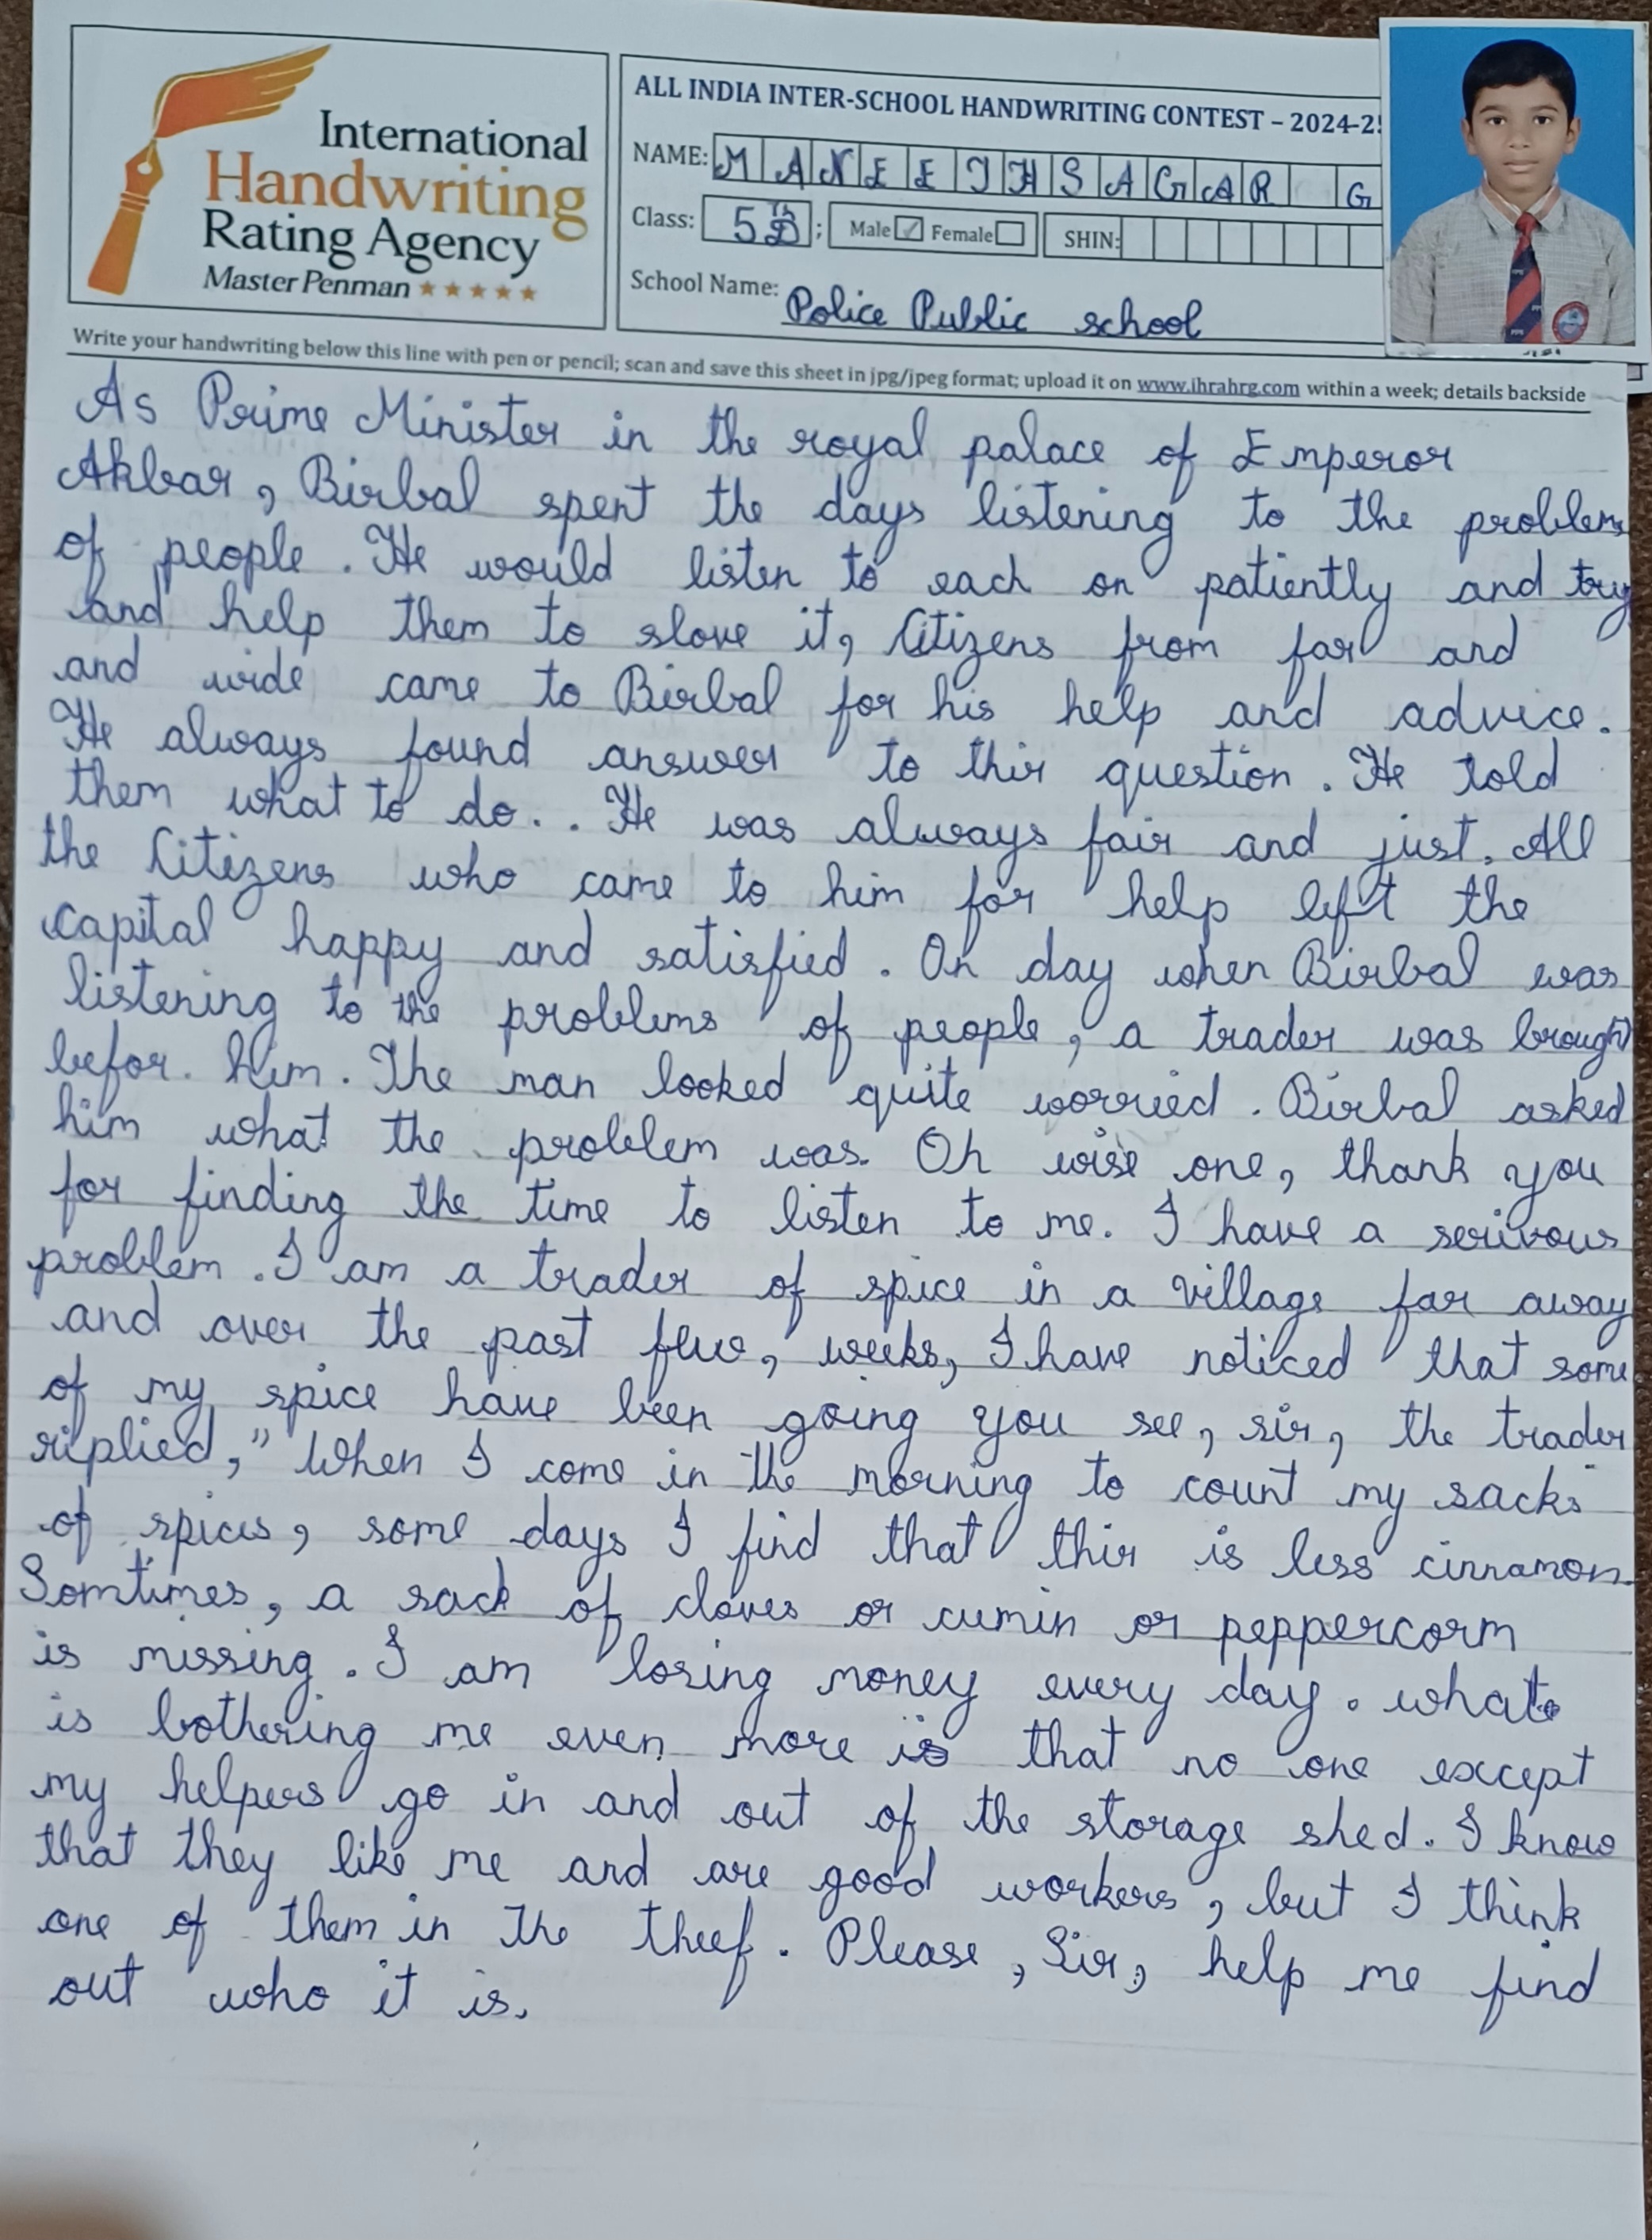 International
Handwriting
Rating Agency
Master Penman
ALL INDIA INTER-SCHOOL HANDWRITING CONTEST – 2024-2
NAME: MANEETHSAGAR G
Class: 5th B ; Male ✓ Female SHIN:
School Name: Police Public school
Write your handwriting below this line with pen or pencil; scan and save this sheet in jpg/jpeg format; upload it on www.ihrahrg.com within a week; details backside
As Prime Minister in the royal palace of Emperor
Akbar, Birbal spent the days listening to the problems
of people. He would listen to each on patiently and try
and help them to slove it, Citizens from far and
and wide came to Birbal for his help and advice.
He always found answer to thir question. He told
them what to do.. He was always fair and just. All
the Citizens who came to him for help left the
capital happy and satisfied. On day when Birbal was
listening to the problems of people, a trader was brough
befor. him. The man looked quite worried. Birbal asked
him what the problem was. Oh wise one, thank you
for finding the time to listen to me. I have a serivous
problem. I am a trader of spice in a village far away
and over the past few, weeks, I have noticed that some
of my spice have been going you see, sir, the trader
riplied," When I come in the morning to count my sacks
of spices, some days I find that thir is less cinnamon
Somtimes, a sack of cloves or cumin or peppercorm
is missing. I am losing money every day. what
is bothering me even more is that no one except
my helpers go in and out of the storage shed. I know
that they like me and are good workers, but I think
one of them in the theef. Please, Sir, help me find
out who it is.